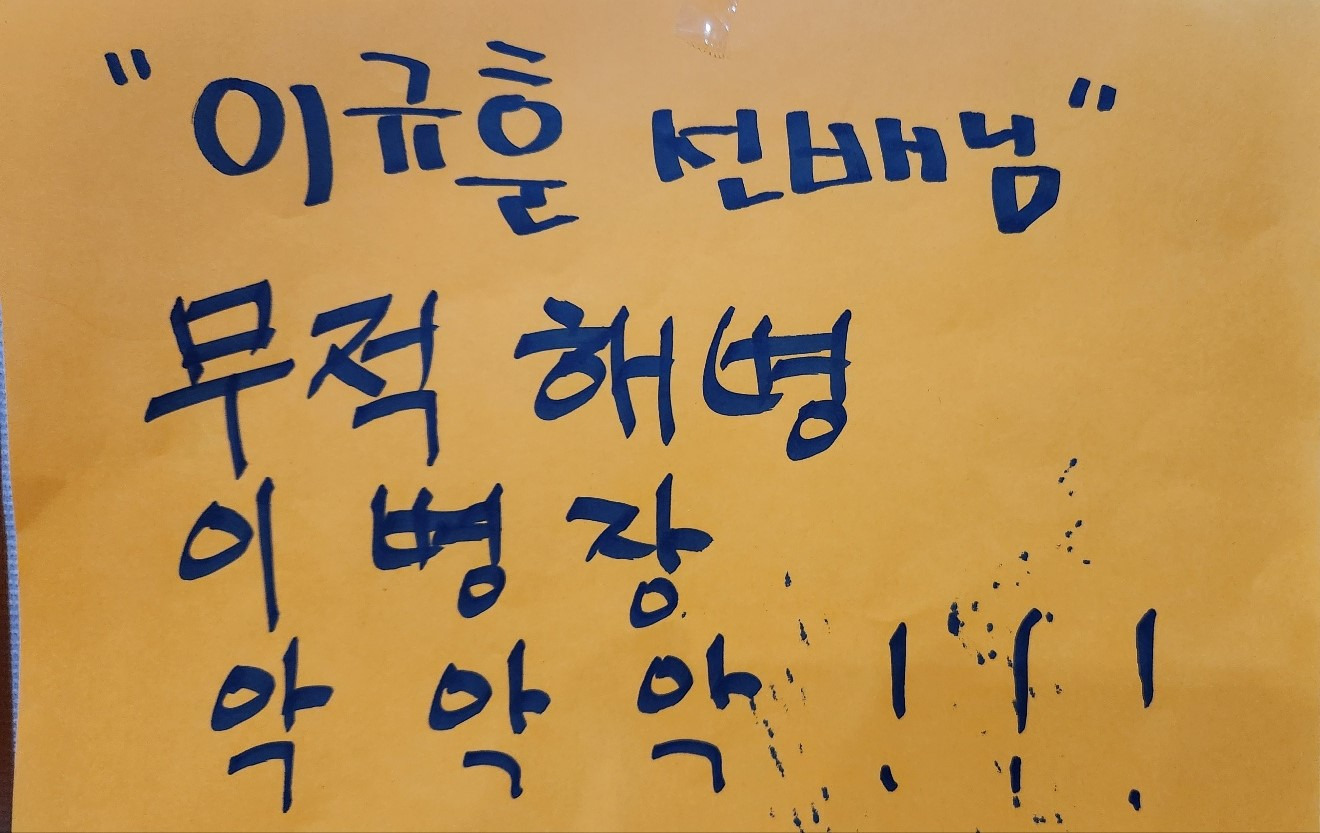 "이규훈 선배님"
무적 해병
이 병 장
악 악 악 ! ! !